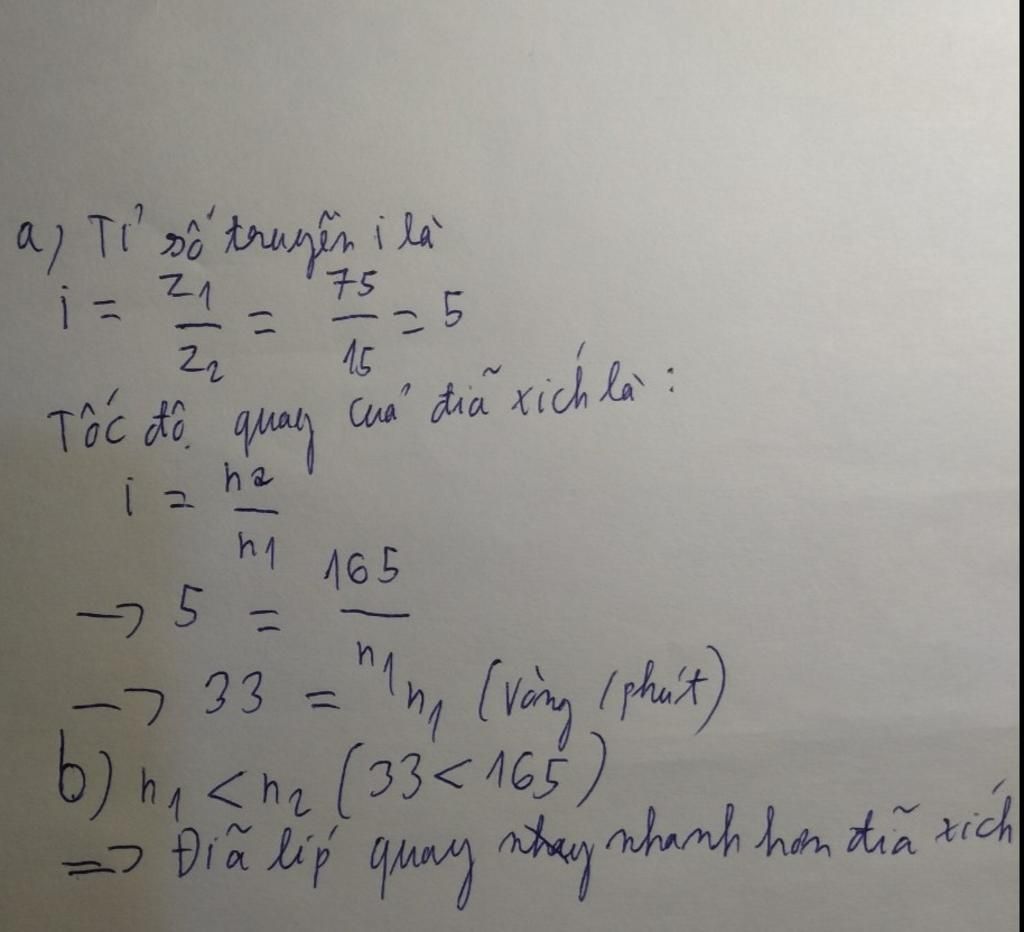 a) Tỉ số truyền i là
i = Z1/Z2 = 75/15 = 5
Tốc độ quay của đĩa xích là :
i = n2/n1
→ 5 = 165/n1
→ 33 = n1 (vòng /phút)
b) n1 < n2 (33 < 165)
=> Đĩa líp quay nhanh hơn đĩa xích